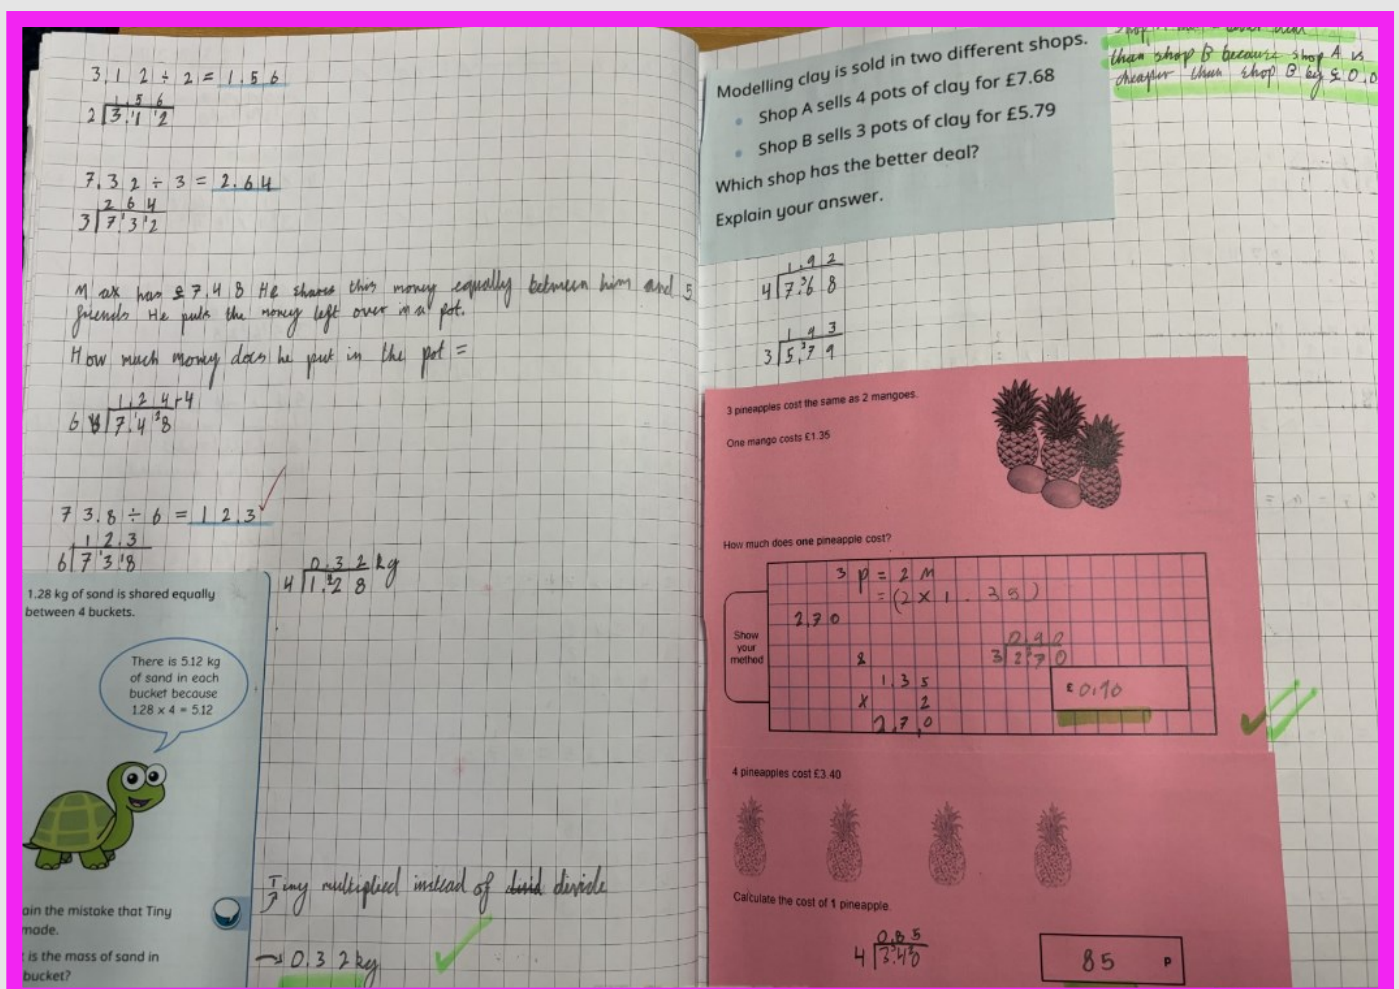 3.12 ÷ 2 = 1.56
1.56
2 3.¹1¹2
7.32 ÷ 3 = 2.64
2 6 4
3 7.¹3¹2
Max has £7.48 He shares this money equally between him and 5
friends He puts the money left over in a pot.
How much money does he put in the pot =
1.24 r4
6 7.¹4²8
73.8 ÷ 6 = 12.3
12.3
6 7¹3¹8
1.28 kg of sand is shared equally
between 4 buckets.
There is 5.12 kg
of sand in each
bucket because
1.28 x 4 = 5.12
ain the mistake that Tiny
made.
is the mass of sand in
bucket?
0.32 kg
4 1.¹28
Tiny multiplied instead of divide
→ 0.32kg
than shop B because shop A is
cheaper than shop B by £0.0
Modelling clay is sold in two different shops.
• Shop A sells 4 pots of clay for £7.68
• Shop B sells 3 pots of clay for £5.79
Which shop has the better deal?
Explain your answer.
1.92
4 7.³68
1 9 3
3 5.²79
3 pineapples cost the same as 2 mangoes.
One mango costs £1.35
How much does one pineapple cost?
Show
your
method
3 p = 2 m
= (2 x 1.35)
2.70
0.90
3 2.²70
1.35
x 2
2.7,0
£ 0.90
4 pineapples cost £3.40
Calculate the cost of 1 pineapple.
0.85
4 3.³4²0
85 p